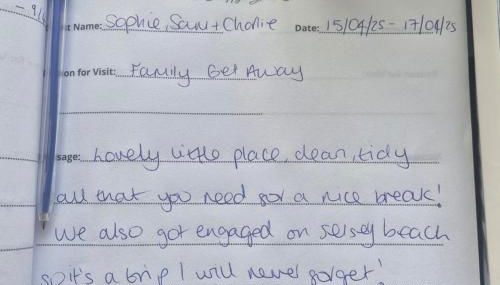 st Name: Sophie, Sam + Charlie Date: 15/04/25 - 17/04/25
son for Visit: Family Get Away
sage: Lovely little place, clean, tidy
all that you need for a nice break!
We also got engaged on selsey beach
so it's a trip I will never forget!